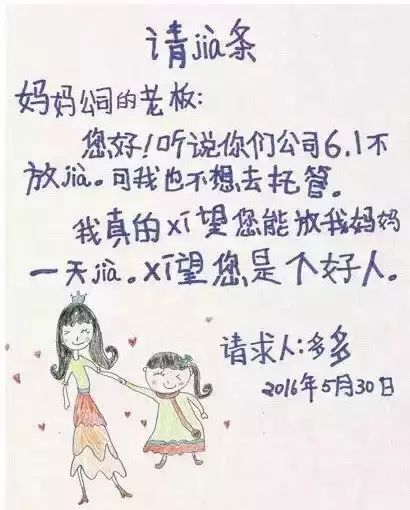 请jià条
妈妈公司的老板:
您好!听说你们公司6.1不
放jià。可我也不想去托管。
我真的xī望您能放我妈妈
一天jià。xī望您是个好人。
请求人:多多
2016年5月30日